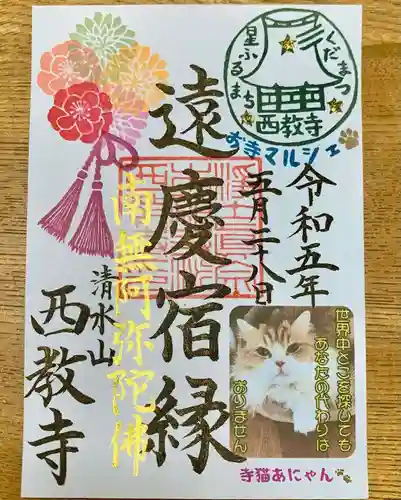 星ふるまち
くだまつ
西教寺
お寺マルシェ
令和五年
五月二十八日
遠慶宿縁
南無阿弥陀佛
清水山
西教寺
世界中どこを探しても
あなたの代わりは
おりません
寺猫あにゃん